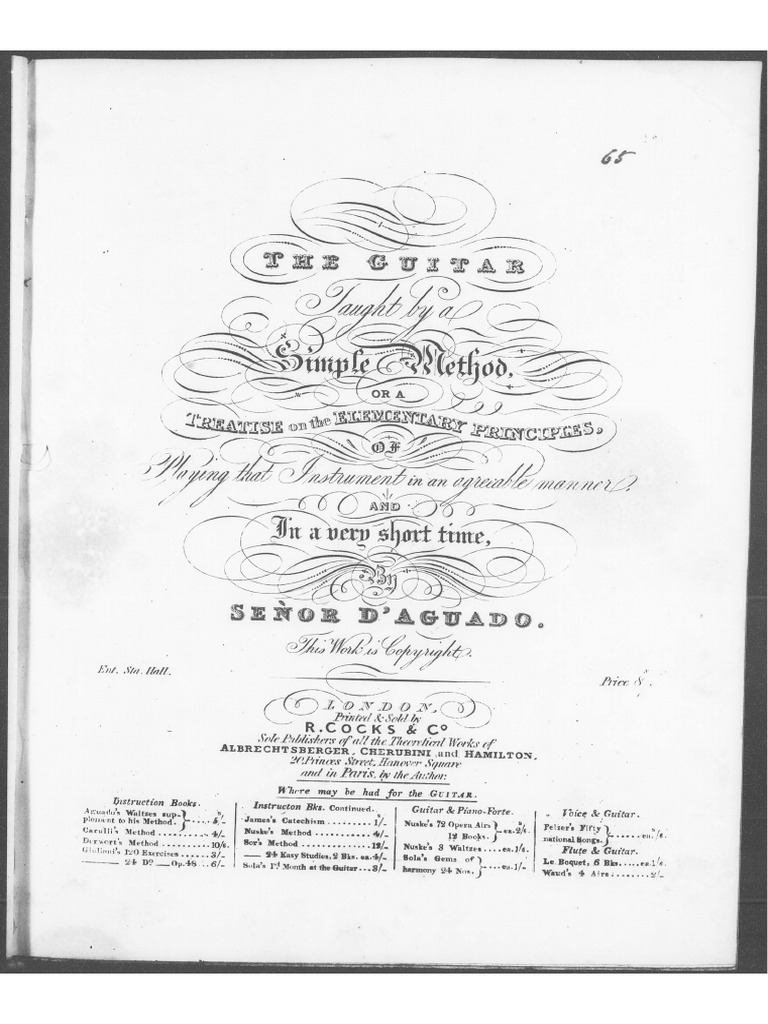 65
THE GUITAR
Taught by a
Simple Method,
OR A
TREATISE on the ELEMENTARY PRINCIPLES,
OF
Playing that Instrument in an agreiable manner.
AND
In a very short time,
By
SEÑOR D'AGUADO.
This Work is Copyright.
Ent. Sta. Hall.
Price 8s.
LONDON,
Printed & Sold by
R. COCKS & Co
Sole Publishers of all the Theoretical Works of
ALBRECHTSBERGER, CHERUBINI and HAMILTON,
20 Princes Street, Hanover Square
and in Paris, by the Author:
Where may be had for the GUITAR.
Instruction Books.
Aguado's Waltzes sup-
plement to his Method. 5/-
Carulli's Method 4/-
Derwort's Method 10/6
Giuliani's 120 Exercises 3/-
24 Do Op. 48 6/-
Instructon Bks. Continued.
James's Catechism 1/-
Nuske's Method 4/-
Sor's Method 12/-
24 Easy Studies, 2 Bks. ea. 4/-
Sola's 1st Month at the Guitar 3/-
Guitar & Piano-Forte.
Nuske's 72 Opera Airs
12 Books. ea. 2/6.
Nuske's 3 Waltzes ea. 1/6.
Sola's Gems of
harmony 24 Nos. ea. 1/-
Voice & Guitar.
Pelzer's Fifty
national Songs. ea. 1/6.
Flute & Guitar.
Le Boquet, 6 Bks. ea. 1/6.
Waud's 4 Airs 2/-